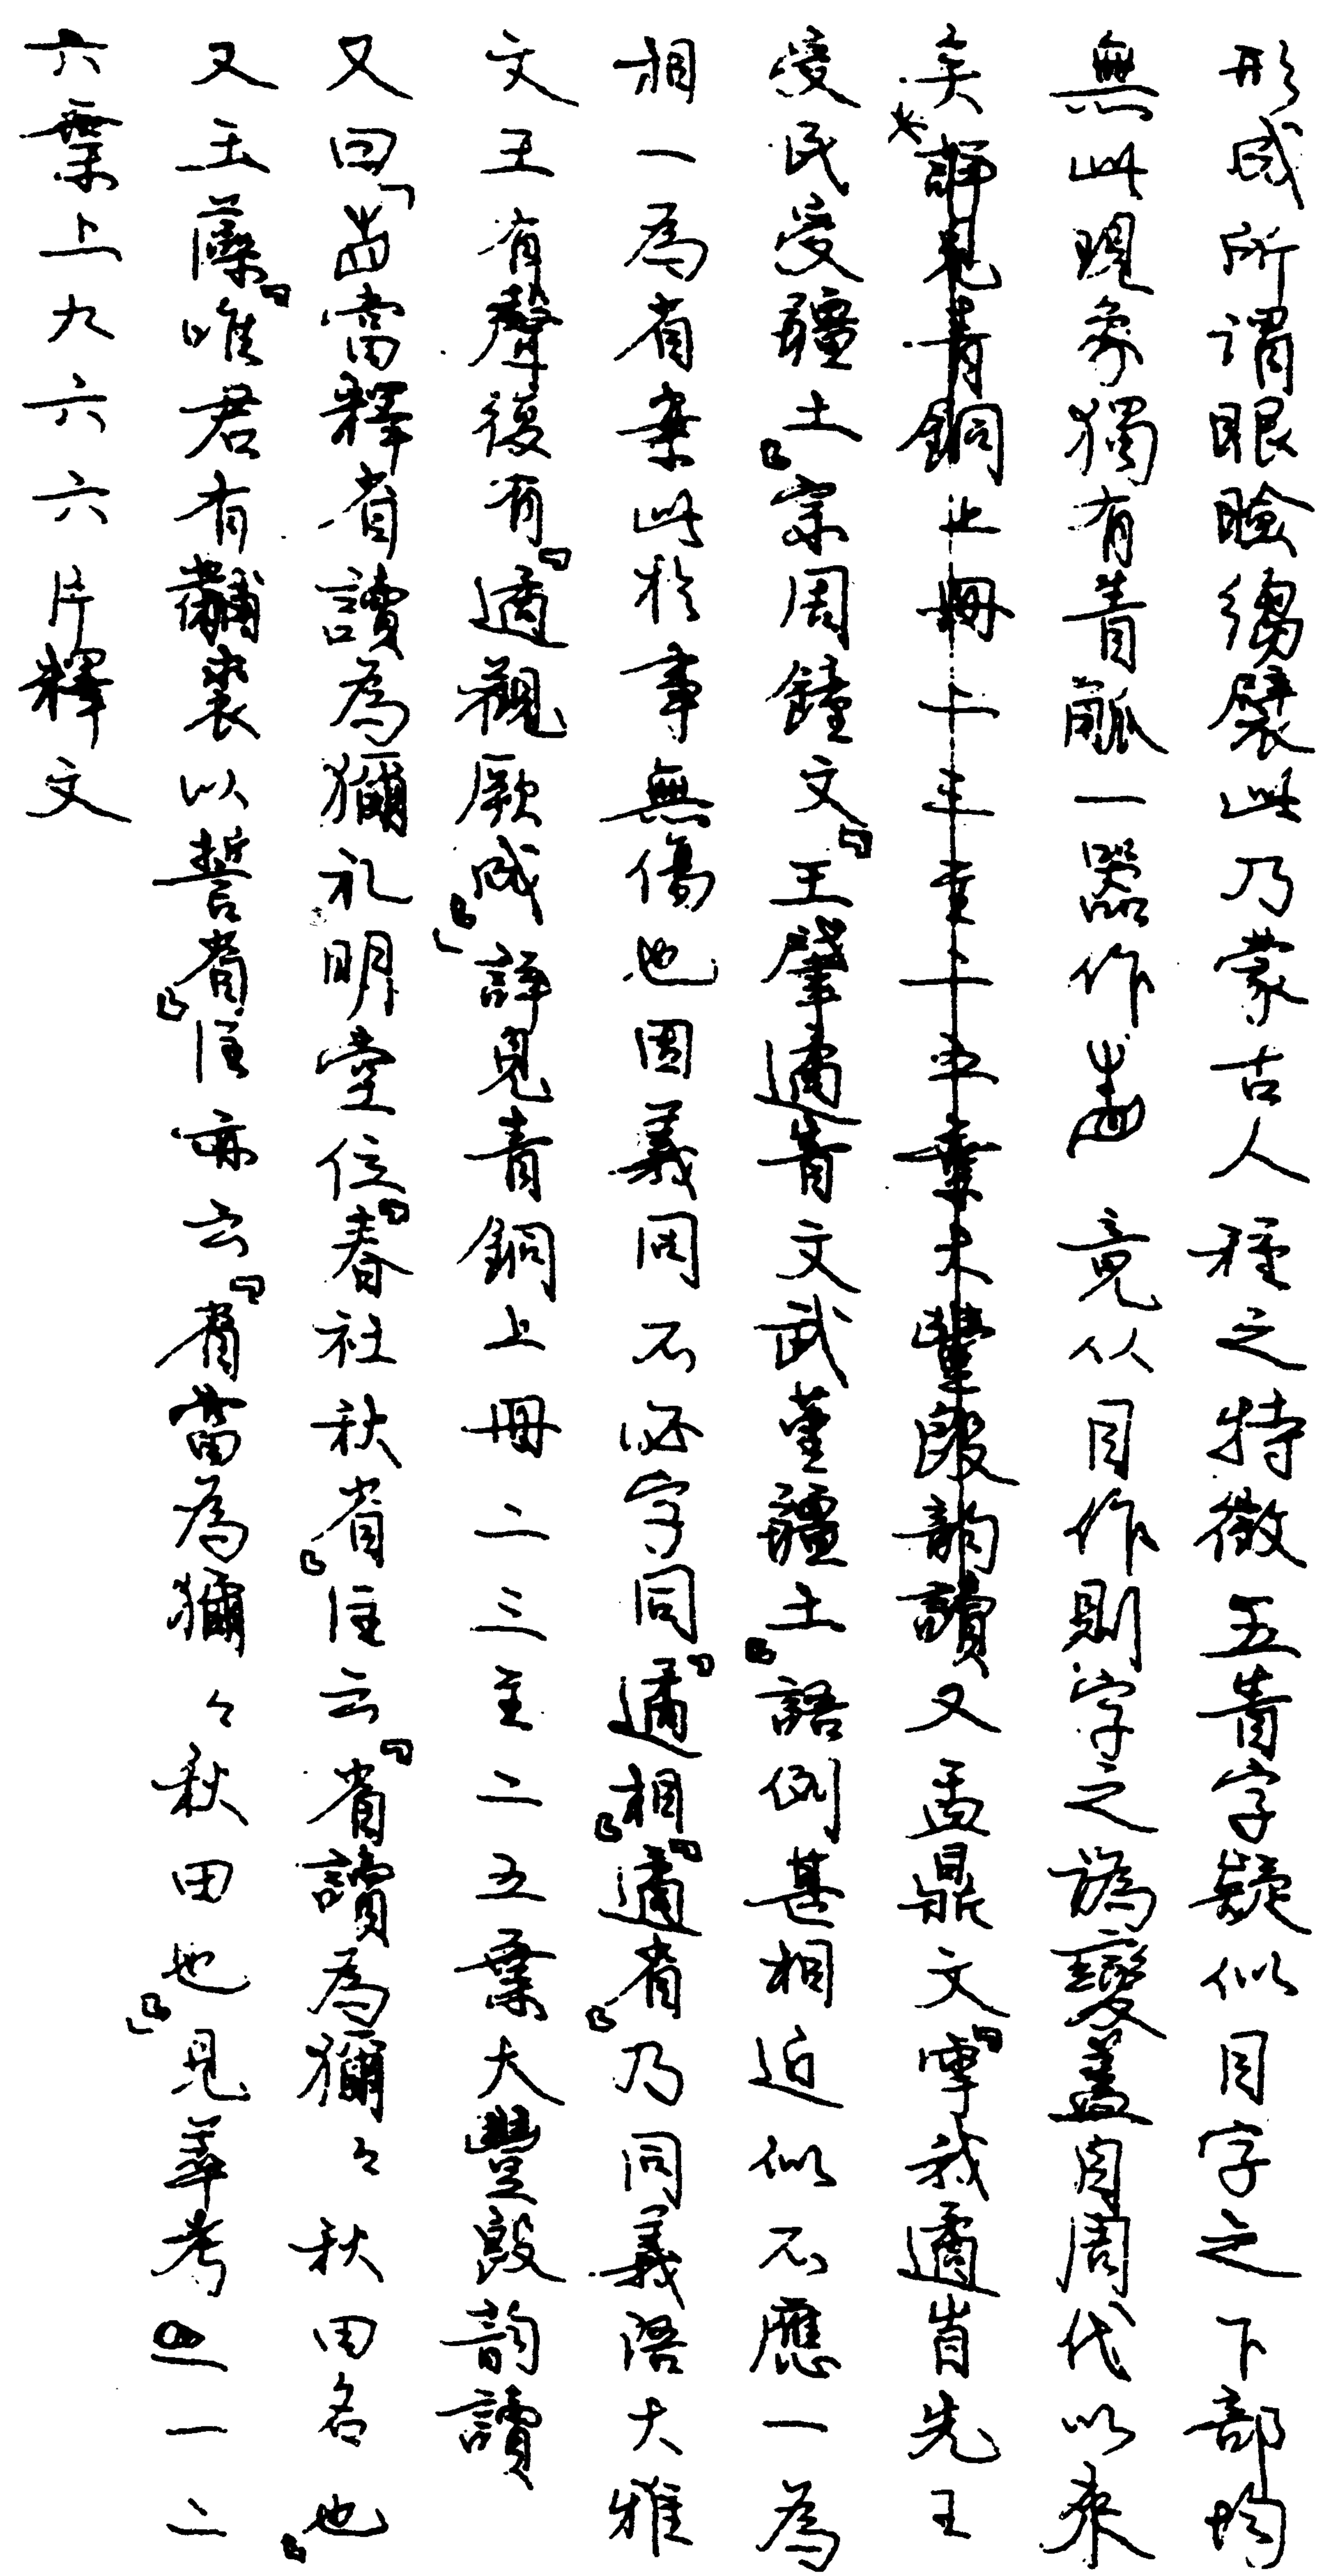 形成所謂眼瞼縐襞此乃蒙古人種之特徵五眚字疑似目字之下部均
無此現象獨有眚甗一器作𡴀竟从目作則字之譌變蓋自周代以來
矣詳見青銅上冊二三主二五葉大豐𣪘韵讀又盂鼎文『雩我遹眚先王
受民受疆土』宗周鐘文『王肇遹眚文武堇疆土』語例甚相近似不應一為
相一為省案此於事無傷也因義同不必字同『遹相』『遹省』乃同義語大雅
文王有聲復有『遹觀厥成』」詳見青銅上冊二三主二五葉大豐𣪘韵讀
又曰「𡴀當釋省讀為獮礼明堂位『春社秋省』注云『省讀為獮々秋田名也』
又玉藻『唯君有黼裘以誓省』注亦云『省當為獮々秋田也』」見華考一二
六葉上九六六片釋文